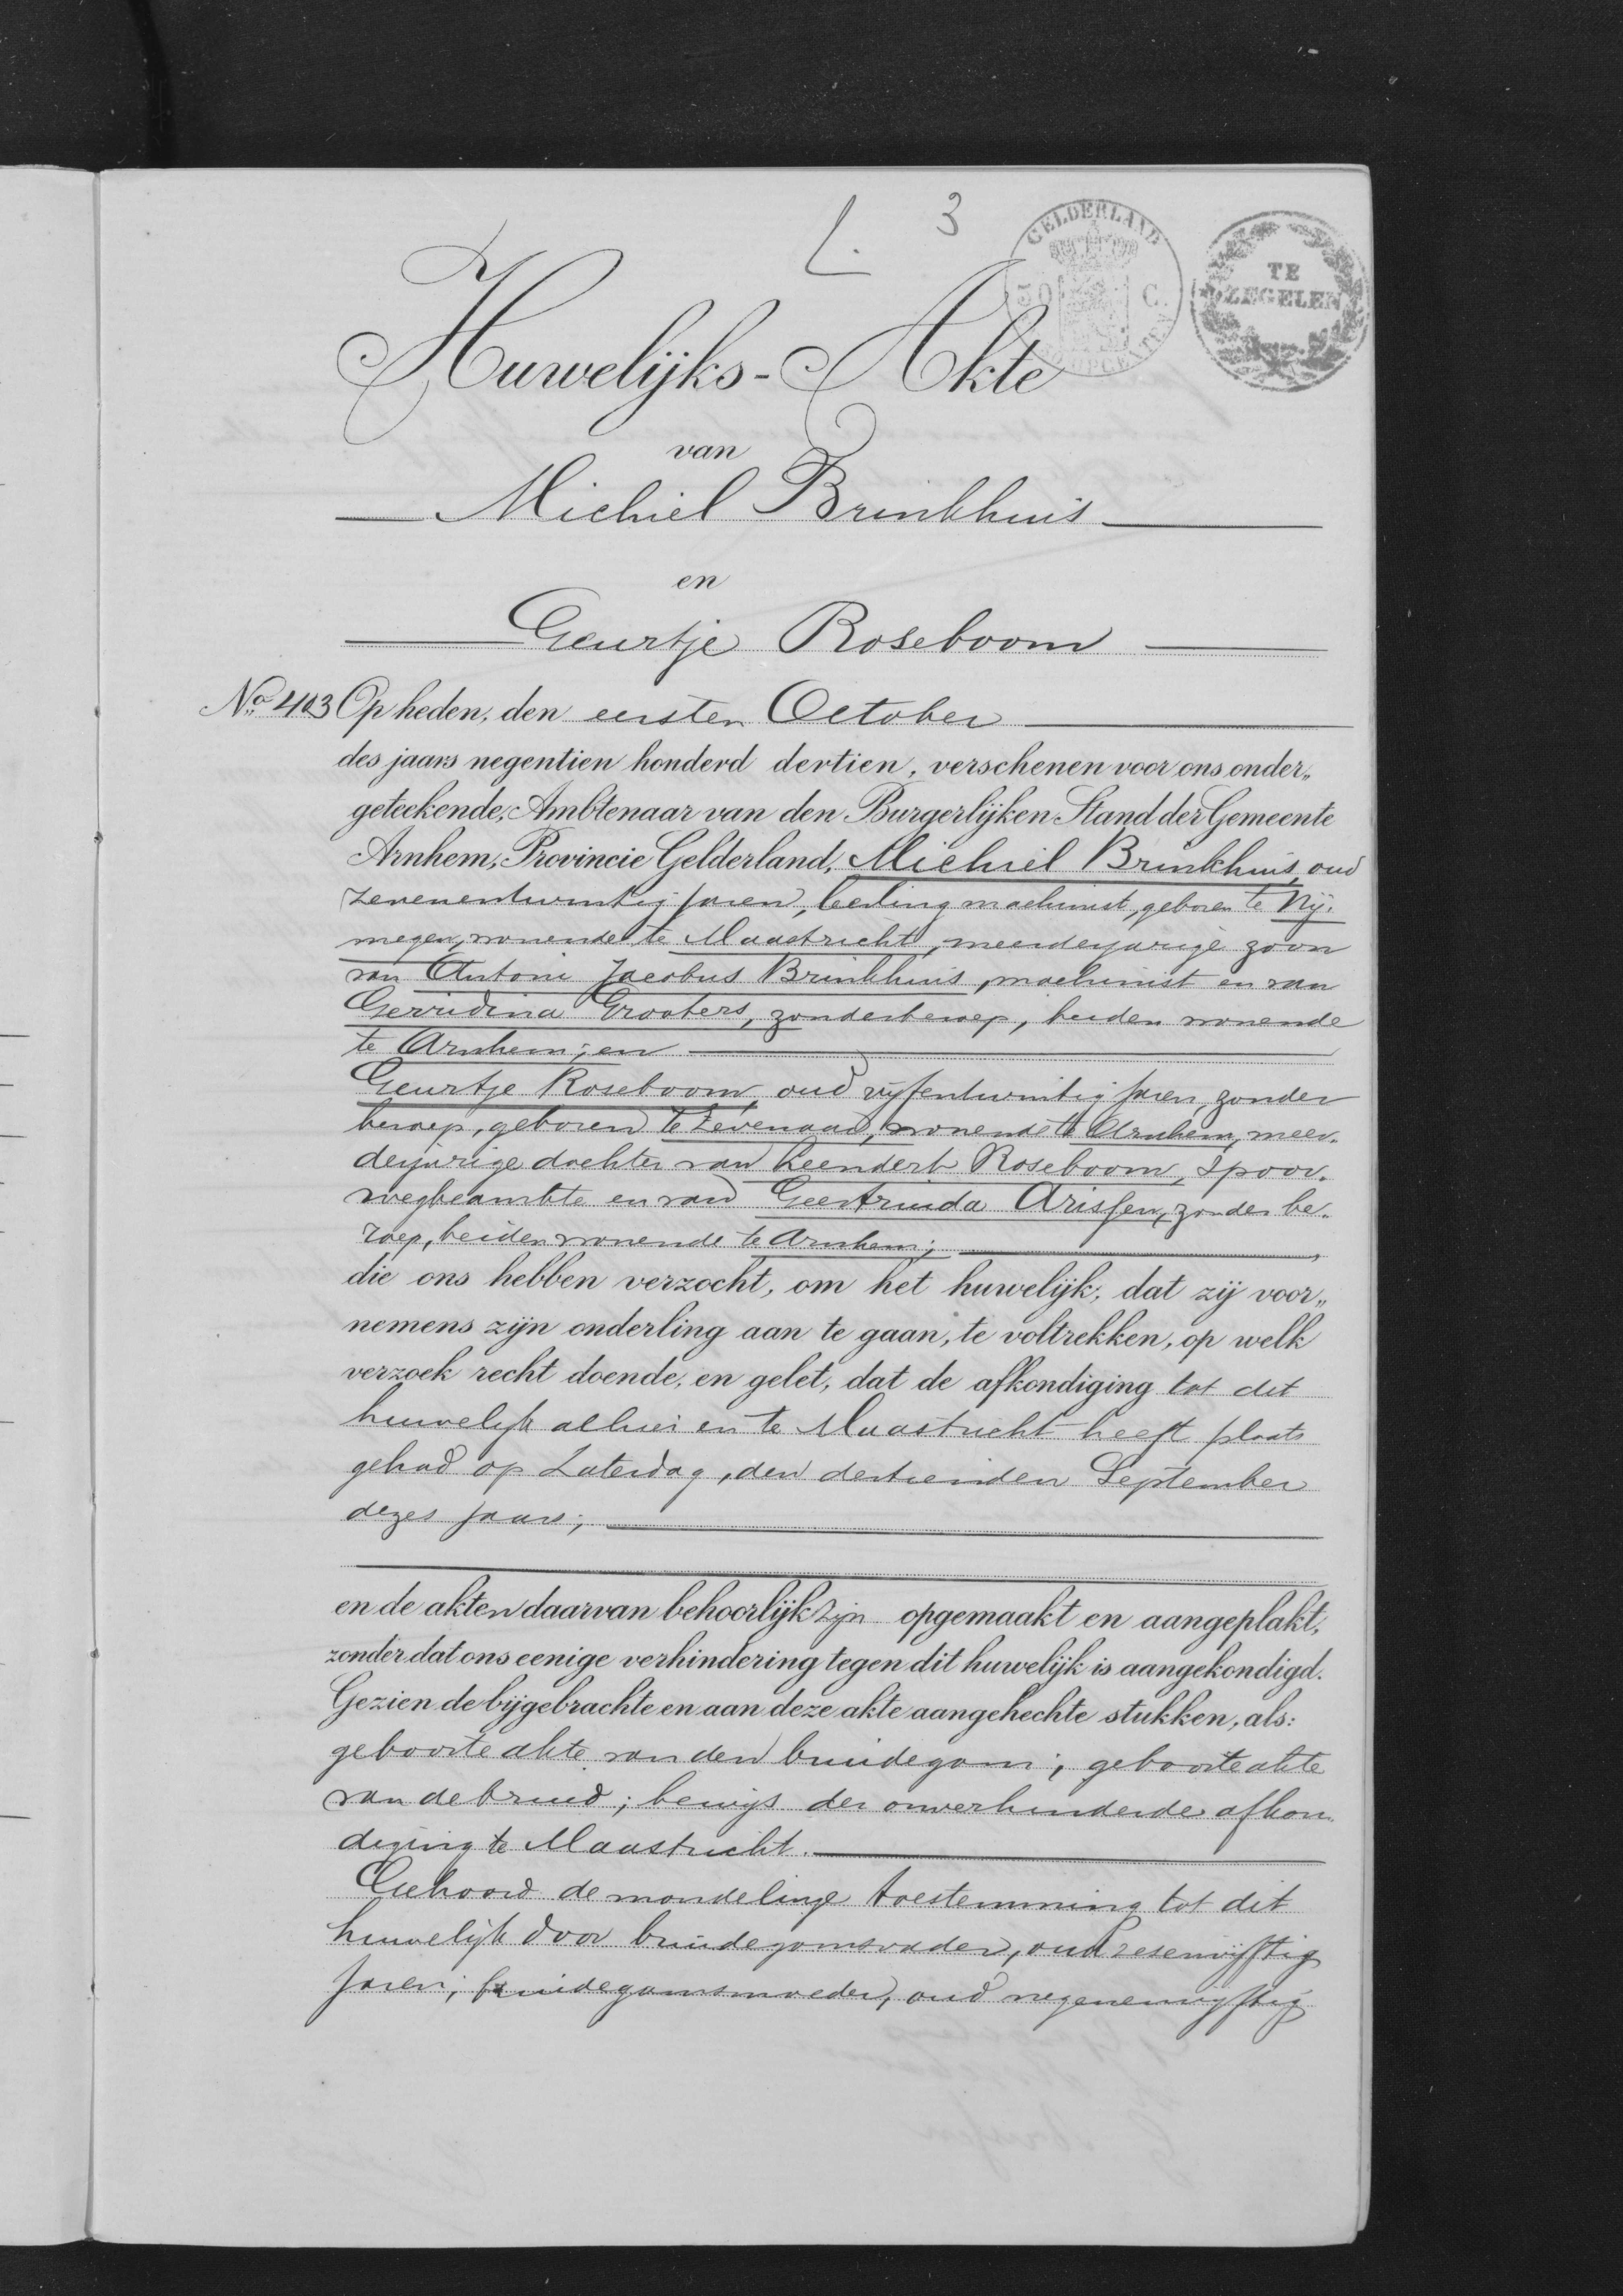 L. 3
GELDERLAND
50 C.
OPCENTEN
TE
ZEGELEN
Huwelijks-Akte
van
Michiel Brinkhuis
en
Geurtje Roseboom
No. 403 Op heden, den eersten October
des jaars negentien honderd dertien, verschenen voor ons onder„
geteekende, Ambtenaar van den Burgerlijken Stand der Gemeente
Arnhem, Provincie Gelderland, Michiel Brinkhuis, oud
zevenentwintig jaren, leerling machinist, geboren te Nij-
megen, wonende te Maastricht, meerderjarige zoon
van Antoni Jacobus Brinkhuis, machinist en van
Gerridina Grooters, zonder beroep, beiden wonende
te Arnhem; en
Geurtje Roseboom, oud vijfentwintig jaren, zonder
beroep, geboren te Zevenaar, wonende te Arnhem, meer-
derjarige dochter van Leendert Roseboom, spoor-
wegbeambte en van Geertruida Arissen, zonder be-
roep, beiden wonende te Arnhem;
die ons hebben verzocht, om het huwelijk, dat zij voor„
nemens zijn onderling aan te gaan, te voltrekken, op welk
verzoek recht doende, en gelet, dat de afkondiging tot dit
huwelijk alhier en te Maastricht heeft plaats
gehad op Zaterdag, den dertienden September
dezes jaars;
en de akten daarvan behoorlijk zijn opgemaakt en aangeplakt,
zonder dat ons eenige verhindering tegen dit huwelijk is aangekondigd.
Gezien de bijgebrachte en aan deze akte aangehechte stukken, als:
geboorteakte van den bruidegom; geboorteakte
van de bruid; bewijs der onverhinderde afkon-
diging te Maastricht.
Gehoord de mondelinge toestemming tot dit
huwelijk door bruidegomsvader, oud zesenvijftig
jaren; bruidegomsmoeder, oud negenenvijftig